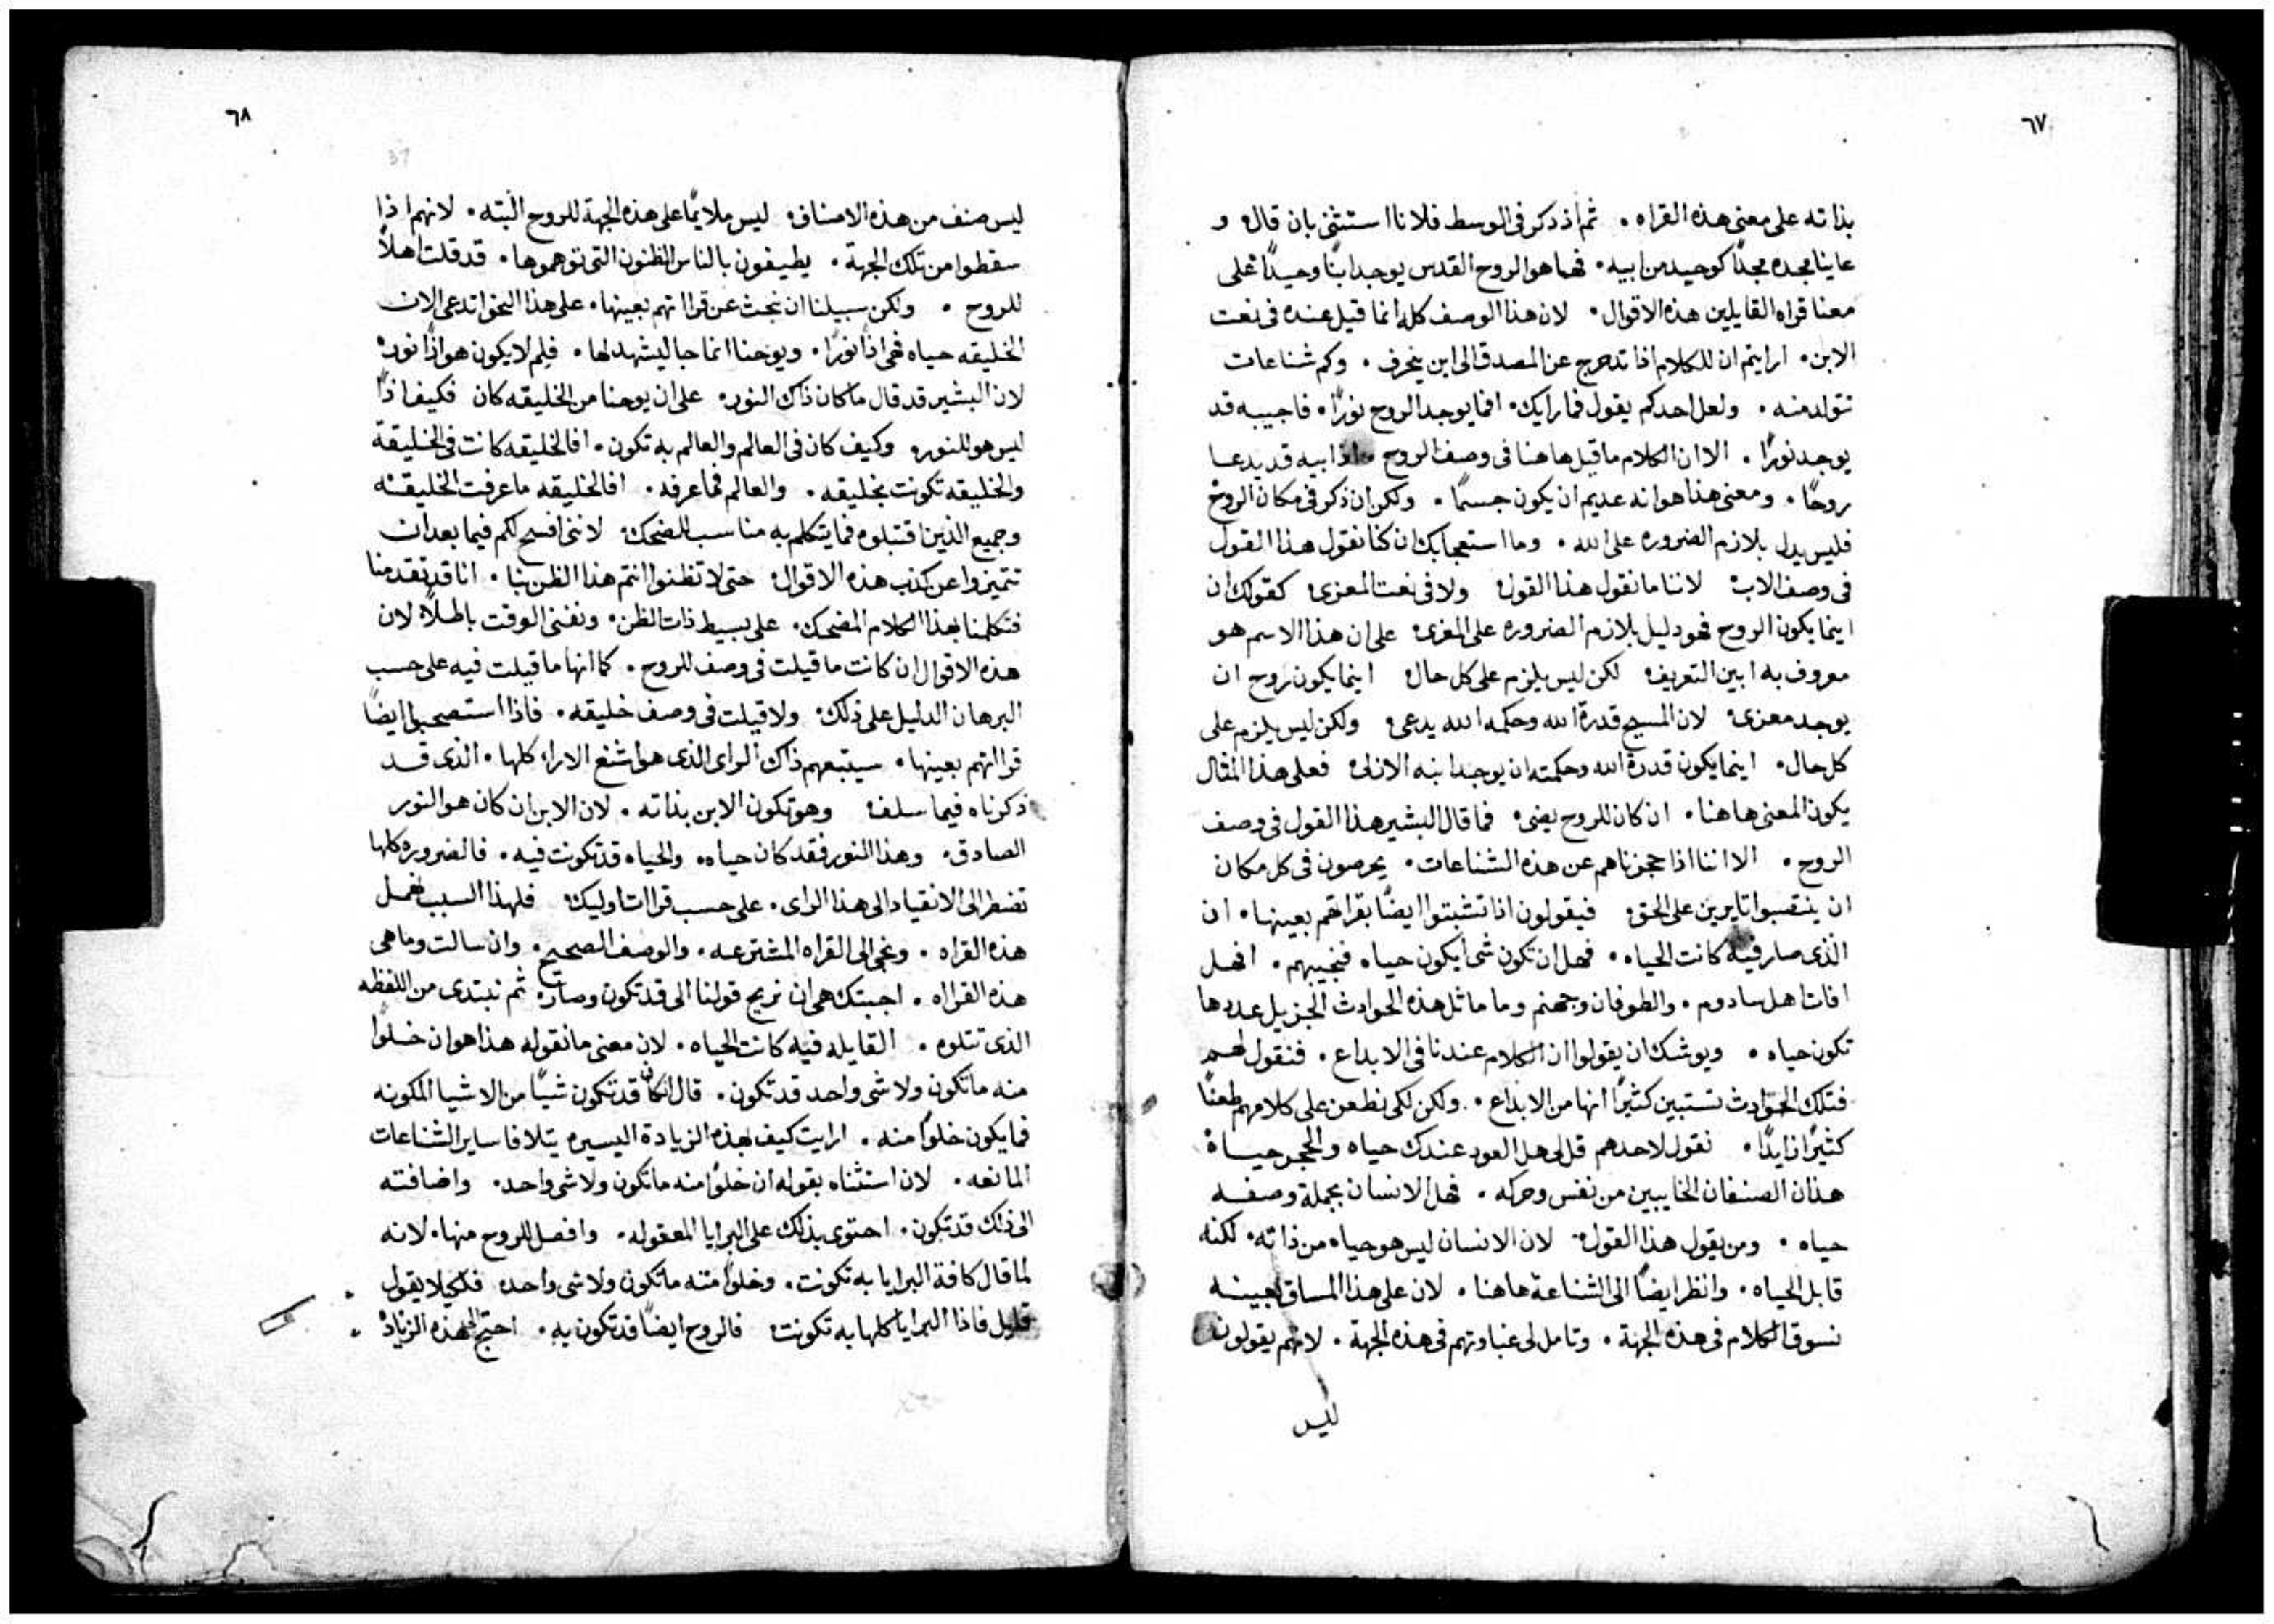 ٦٧
بذاته على معنى هذه القراه . ثم اذ ذكر فى الوسط فلانا استثنى بان قال و
عاينا مجده مجدًا كوحيد من ابيه . فها هو الروح القدس يوجد ابنًا وحيدًا على
معنا قراه القايلين هذه الاقوال . لان هذا الوصف كله انما قيل عنده فى نعت
الابن . ارايتم ان للكلام اذا تدحرج عن المصدق الى اين ينحرف . وكم شناعات
تتولد منه . ولعل احدكم يقول فما رايك . افما يوجد الروح نورًا . فاجيبه قد
يوجد نورًا . الا ان الكلام ما قيل هاهنا فى وصف الروح اذ ابيه قد يدعا
روحًا . ومعنى هذا هو انه عديم ان يكون جسمًا . ولكن ان ذكر فى مكان الروح
فليس يدل بلازم الضروره على الله . وما استعجابك ان كنا نقول هذا القول
فى وصف الاب لاننا ما نقول هذا القول ولا فى نعت المعزى كقولك ان
اينما يكون الروح فهو دليل بلازم الضروره على المغرى على ان هذا الاسم هو
معروف به ابين التعريف لكن ليس يلزم على كل حال اينما يكون روح ان
يوجد معزى لان المسيح قدرة الله وحكمه الله يدعى ولكن ليس يلزم على
كل حال . اينما يكون قدرة الله وحكمته ان يوجد ابنه الازلى فعلى هذا المثال
يكون المعنى هاهنا . ان كان للروح يضى فما قال البشير هذا القول فى وصف
الروح . الا اننا اذا حجزناهم عن هذه الشناعات . يحرصون فى كل مكان
ان ينتصبوا تايرين على الحق فيقولون اذا تشبتوا ايضًا بقراتهم بعينها . ان
الذى صار فيه كانت الحياه . فهل ان تكون شى ايكون حياه فنجيبهم . افهل
افات اهل سادوم . والطوفان وجهنم وما ماثل هذه الحوادث الجزيل عددها
تكون حياه . ويوشك ان يقولوا ان الكلام عندنا فى الابداع . فنقول لهم
فتلك الحوادث تستبين كثيرًا انها من الابداع . ولكن لكى نطعن على كلامهم طعنًا
كثيرًا زايدًا . نقول لاحدهم قل لى هل العود عندك حياه والحجر حياة
هذان الصنفان الخايبين من نفس وحركه . فهل الانسان بجملة وصفه
حياه . ومن يقول هذا القول . لان الانسان ليس هو حياه من ذاته . لكنه
قابل الحياه . وانظر ايضًا الى الشناعة هاهنا . لان على هذا المساق بعينه
نسوق الكلام فى هذه الجهة . وتامل لى غباوتهم فى هذه الجهة . لانهم يقولون
ليس
٦٨
37
ليس صنف من هذه الاصناف ليس ملايمًا على هذه الجهة للروح البته . لانهم اذا
سقطوا من تلك الجهة . يطيفون بالناس الظنون التى توهموها . قد قلت اهلاً
للروح . ولكن سبيلنا ان نبحث عن قراتهم بعينها . على هذا النحو اتدعى الان
الخليقه حياه فهى اذًا نورًا . ويوحنا انما جا ليشهد لها . فلِم لا يكون هو اذًا نور
لان البشير قد قال ما كان ذاك النور . على ان يوحنا من الخليقه كان فكيف اذًا
ليس هو للنور وكيف كان فى العالم والعالم به تكون . افالخليقه كانت فى الخليقة
والخليقه تكونت بخليقه . والعالم فما عرفه . افالخليقه ما عرفت الخليقه
وجميع الذين اقتبلوه فما يتكلم به مناسب للضحك لاننى افسح لكم فيما بعد ان
تتميزوا عن كذب هذه الاقوال حتى لا تظنوا انتم هذا الظن بنا . انا قد تقدمنا
فتكلمنا بهذا الكلام المضحك . على بسيط ذات الظن . ونفنى الوقت باطلاً لان
هذه الاقوال ان كانت ما قيلت فى وصف للروح . كما انها ما قيلت فيه على حسب
البرهان الدليل على ذلك . ولا قيلت فى وصف خليقه . فاذا استصحبوا ايضًا
قراتهم بعينها . سيتبعهم ذاك الراى الذى هو اشنع الارا كلها . الذى قد
ذكرناه فيما سلف وهو تكون الابن بذاته . لان الابن ان كان هو النور
الصادق . وهذا النور فقد كان حياه . والحياه قد تكونت فيه . فالضروره كلها
تضطر الى الانقياد الى هذا الراى . على حسب قراات اوليك فلهذا السبب نهمل
هذه القراه . ونجى الى القراه المشترعه . والوصف الصحيح . وان سالت وما هى
هذه القراه . اجبتك هى ان نريح قولنا الى قد تكون وصار . ثم نبتدى من اللفظه
الذى تتلوه . القايله فيه كانت الحياه . لان معنى ما نقوله هذا هو ان خلوًا
منه ما تكون ولا شى واحد قد تكون . قال ان كان قد تكون شيًا من الاشيا المكونه
فما يكون خلوًا منه . ارايت كيف بهذه الزيادة اليسيره يتلافا ساير الشناعات
المانعه . لان استثناه بقوله ان خلوًا منه ما تكون ولا شى واحد . واضافته
الى ذلك قد تكون . احتوى بذلك على البرايا المعقوله . وافصل للروح منها . لانه
لما قال كافة البرايا به تكونت . وخلوًا منه ما تكون ولا شى واحد فلكيلا يقول
قايل فاذا البرايا كلها به تكونت فالروح ايضًا قد تكون به . احتج الى هذه الزياده